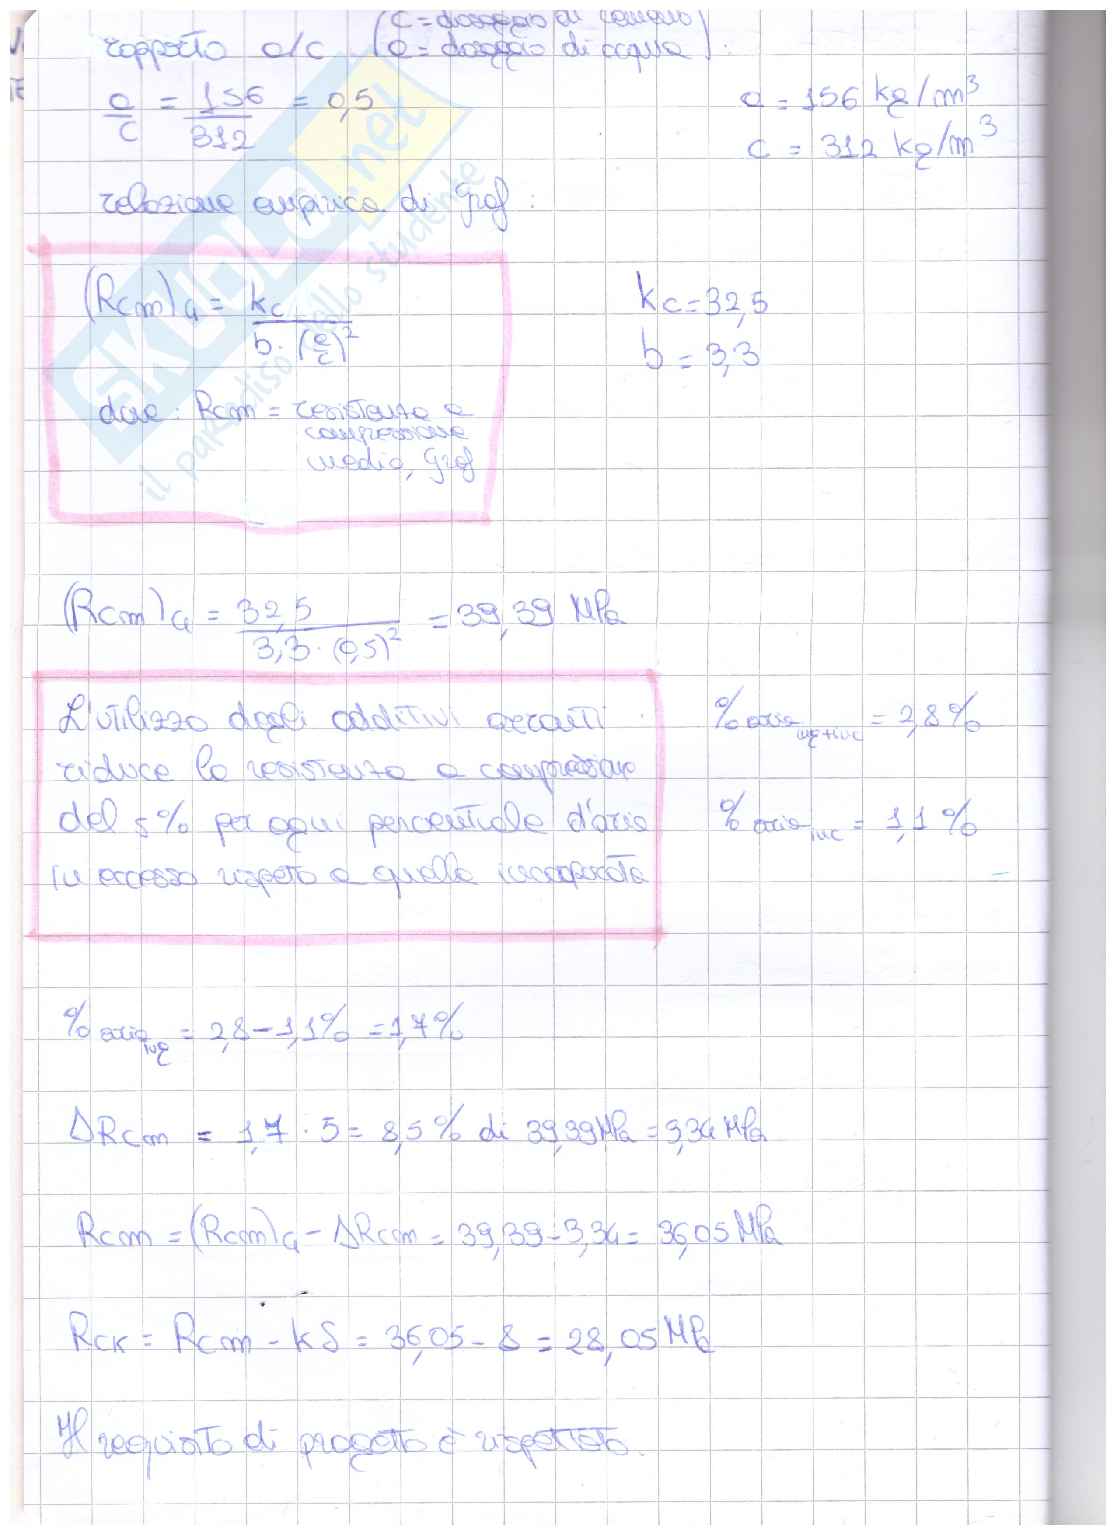 (c = dosaggio di cemento)
rapporto a/c (a = dosaggio di acqua).
a/c = 156/312 = 0,5
a = 156 kg/m³
c = 312 kg/m³
relazione empirica di Graf:
(Rcm)G = kc / b·(a/c)²
kc = 32,5
b = 3,3
dove: Rcm = resistenza a
compressione
media, Graf
(Rcm)G = 32,5 / 3,3·(0,5)² = 39,39 MPa
L'utilizzo degli additivi aeranti
riduce la resistenza a compressione
del 5% per ogni percentuale d'aria
in eccesso rispetto a quella incorporata
% aria ing+inc = 2,8%
% aria inc = 1,1%
% aria ing = 2,8-1,1% = 1,7%
ΔRcm = 1,7·5 = 8,5% di 39,39 MPa = 3,34 MPa
Rcm = (Rcm)G - ΔRcm = 39,39-3,34 = 36,05 MPa
Rck = Rcm - kδ = 36,05 - 8 = 28,05 MPa
Il requisito di progetto è rispettato.
SKUOLA.net
il paradiso dello studente